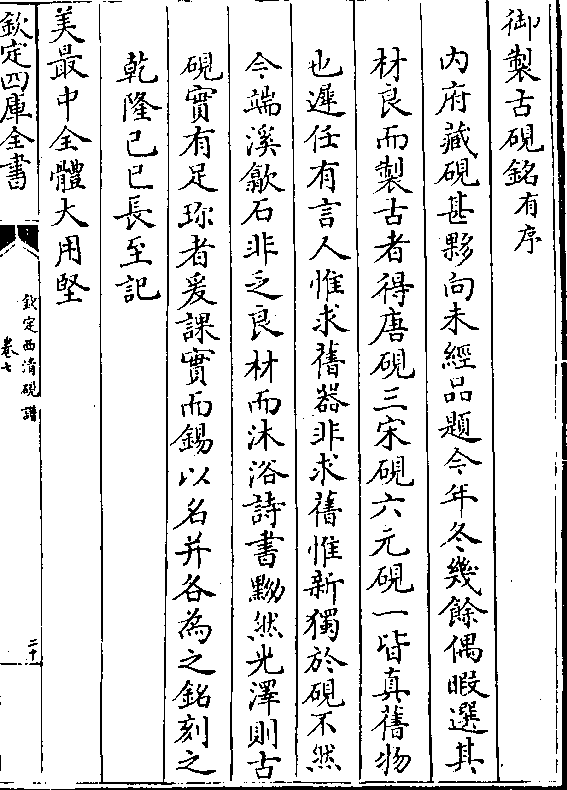 御製古硯銘有序
內府藏硯甚夥向未經品題今年冬幾餘偶暇選其
材良而製古者得唐硯三宋硯六元硯一皆真舊物
也遲任有言人惟求舊器非求舊惟新獨於硯不然
今端溪歙石非乏良材而沐浴詩書黝然光澤則古
硯實有足珎者爰課實而錫以名并各為之銘刻之
乾隆己巳長至記
美最中全體大用堅
欽定四庫全書
欽定西清硯譜
卷七
二十